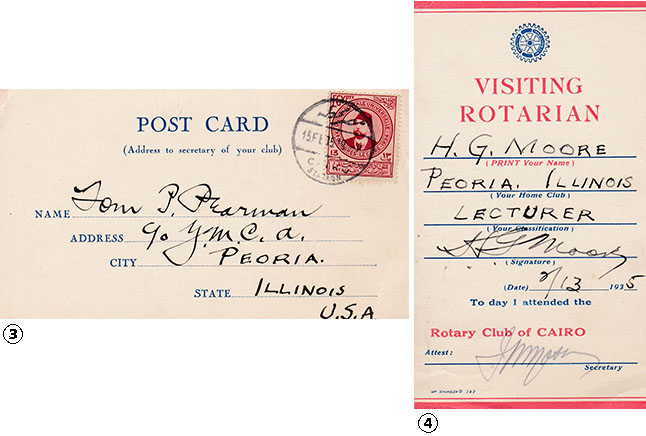 POST CARD
(Address to secretary of your club)
NAME Tom P. Pearman
ADDRESS c/o Y.M.C.A.
CITY PEORIA.
STATE ILLINOIS
U.S.A
3
VISITING
ROTARIAN
H. G. MOORE
(PRINT Your Name)
PEORIA. ILLINOIS
(Your Home Club)
LECTURER
(Your Classification)
H G Moore
(Signature)
(Date) 2/13 1935
To day I attended the
Rotary Club of CAIRO
Attest:
Secretary
4